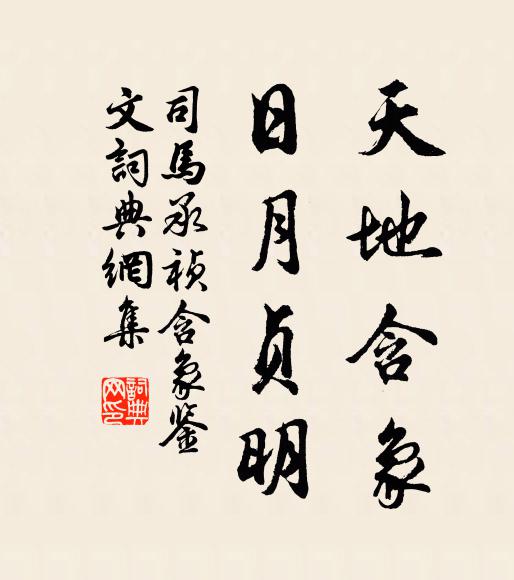 天地含象
日月贞明
司馬承祯含象鉴
文詞典網集
詞典
网印